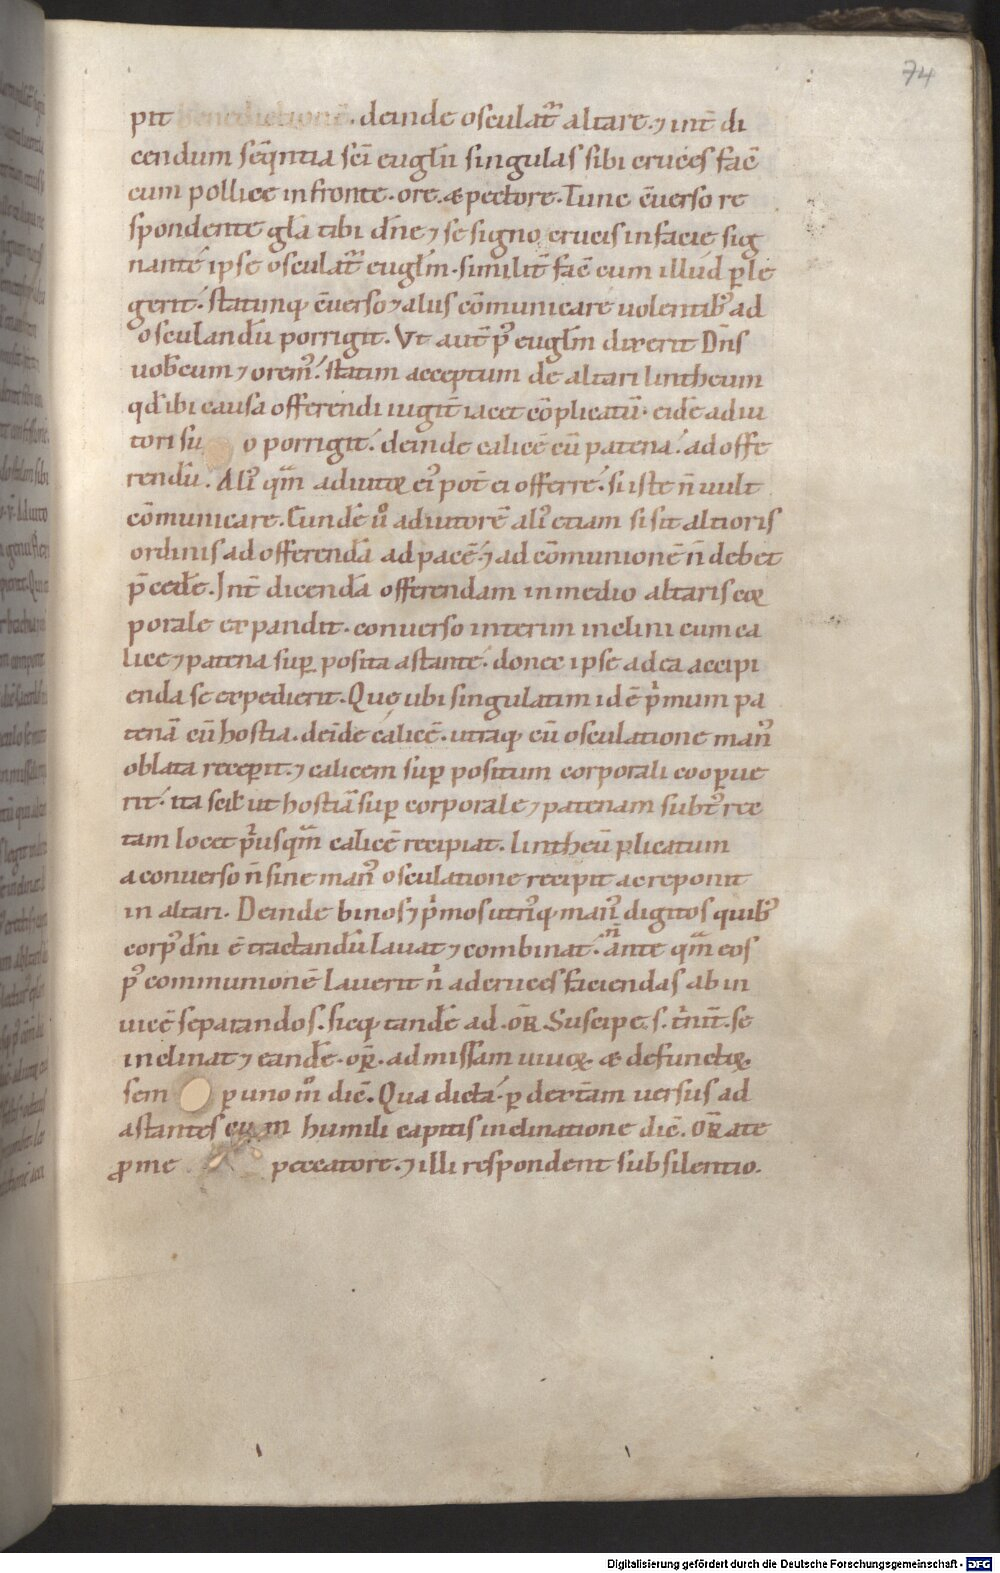 74
pit benedictionē. deinde osculat᷒ altare. ⁊ int̄ di
cendum seq̄ntia sc̄i eugl̄ii singulas sibi cruces fac̄
cum pollice in fronte. ore. & pectore. Tunc c̄uerso re
spondente gl̄a tibi dn̄e ⁊ se signo crucis in facie sig
nante ipse osculat᷒ euglm̄. similit̄ fac̄ cum illud ꝑle
gerit. statimq; c̄uerso ⁊ aliis cōmunicare uolentib; ad
osculandū porrigit. Vt aut̄ p᷒ euglm̄ dixerit Dn̄s
uobcum ⁊ orem᷒. statim acceptum de altari lintheum
qd̄ ibi causa offerendi iugit̄ iacet cōplicatū. eidē adiu
tori su o porrigit. deinde calicē cū patena. ad offe
rendū. Ali᷒ qm̄ adiutor ei᷒ pot̄ ei offerre. si iste n̄ uult
cōmunicare. Eundē ů adiutorē ali᷒ etiam si sit altioris
ordinis ad offerendā ad pacē. ⁊ ad cōmunionē n̄ debet
p̄cedē. Int̄ dicendā offerendam in medio altaris cor
porale expandit. conuerso interim inclini cum ca
lice ⁊ patena suꝑ posita astante. donec ipse ad ea accipi
enda se expedierit. Quę ubi singulatim id ē p̄mum pa
tenā cū hostia. deīde calicē. utraq; cū osculatione man᷒
oblata receꝑit. ⁊ calicem suꝑ positum corporali cooꝑue
rit. ita scil; ut hostiā suꝑ corporale ⁊ patenam subt᷒ rec
tam locet p̄usqm̄ calicē recipiat. lintheū plicatum
a conuerso n̄ sine man᷒ osculatione recipit ac reponit
in altari. Deinde binos ⁊ p̄mos utri᷒q; man᷒ digitos quib;
corp᷒ dn̄i ē tractandū lauat ⁊ combinat. n̄ ante qm̄ eos
p᷒ communionē lauerit n̄ ad cruces faciendas ab in
uicē separandos. sicq; tandē ad. oR̄. Suscipe. s. t̄nit̄. se
inclinat ⁊ eandē. oR̄. ad missam uiuoꝝ & defunctoꝝ.
sem ꝑ uno m̊ dic̄. Qua dicta. ꝑ dext̄am uersus ad
astantes cu m humili capitis inclinatione dic̄. oR̄ate
ꝓ me peccatore. ⁊ illi respondent sub silentio.
Digitalisierung gefördert durch die Deutsche Forschungsgemeinschaft - DFG